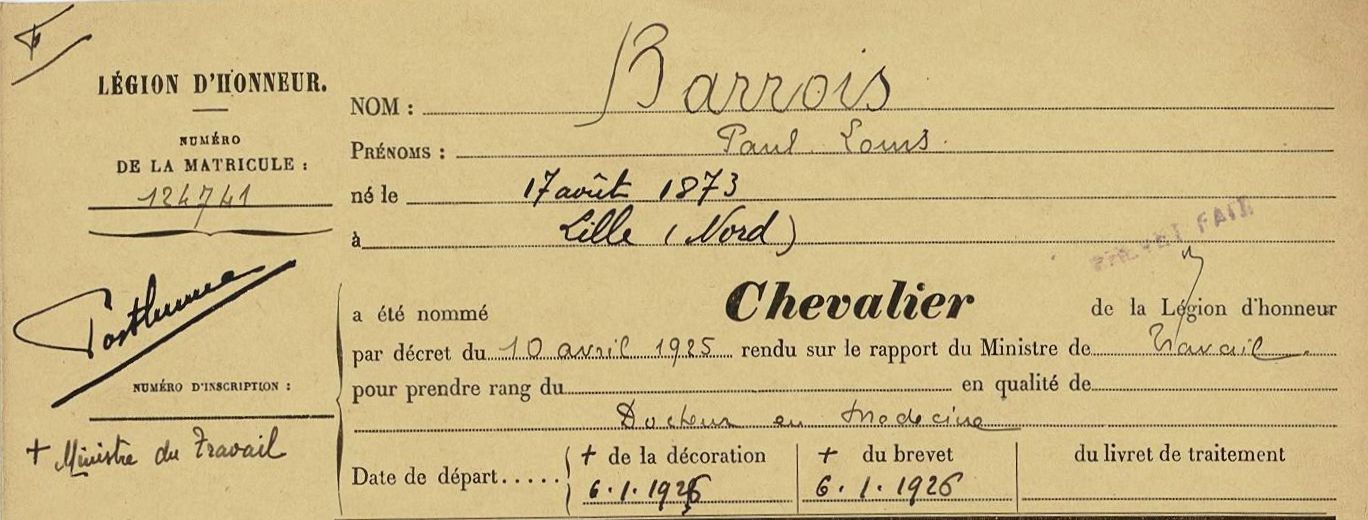 LÉGION D'HONNEUR.
NUMÉRO
DE LA MATRICULE :
124741
Posthume
NUMÉRO D'INSCRIPTION :
+ Ministre du Travail
NOM : Barrois
PRÉNOMS : Paul Louis
né le 17 août 1873
à Lille (Nord)
BREVET FAIT
a été nommé Chevalier de la Légion d'honneur
par décret du 10 avril 1925 rendu sur le rapport du Ministre de Travail
pour prendre rang du en qualité de
Docteur en Médecine
Date de départ..... + de la décoration + du brevet du livret de traitement
6.1.1926 6.1.1926